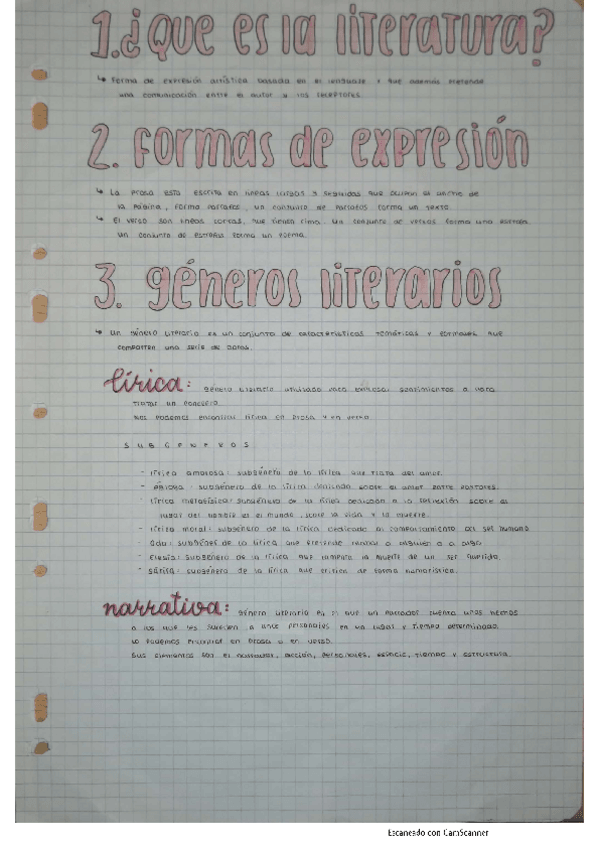 1.¿Que es la literatura?
↳ Forma de expresión artística basada en el lenguaje y que además pretende
una comunicación entre el autor y los receptores.
2. Formas de expresión
↳ La prosa esta escrita en lineas largas y seguidas que ocupan el ancho de
la página, forma párrafos, un conjunto de párrafos forma un texto.
↳ El verso son lineas cortas, que tienen rima. Un conjunto de versos forma una estrofa.
Un conjunto de estrofas forma un poema.
3. géneros literarios
↳ Un género literario es un conjunto de características temáticas y formales que
comparten una serie de obras.
lírica: género literario utilizado para expresar sentimientos o para
tratar un
Nos podemos encontrar lírica en prosa y en verso
SUBGENEROS
- lírica amorosa: subgénero de la lírica que trata del amor.
- égloga: subgénero de la lírica dedicado sobre el amor entre pastores.
- lírica metafísica: subgénero de la lírica dedicado a la reflexión sobre el
lugar del hombre en el mundo, sobre la vida y la muerte.
- lírica moral: subgénero de la lírica dedicado al comportamiento del ser humano.
- Oda: subgénero de la lírica que pretende a alguien o a algo.
- Elegía: subgénero de la lírica que lamenta la muerte de un ser querido.
- Sátira: subgénero de la lírica que critica de forma humorística.
narrativa: género literario en el que un narrador cuenta unos hechos
a los que les suceden a unos personajes en un lugar y tiempo determinado.
Lo podemos encontrar en prosa o en verso.
Sus elementos son el narrador, acción, personajes, espacio, tiempo y estructura.
Escaneado con CamScanner